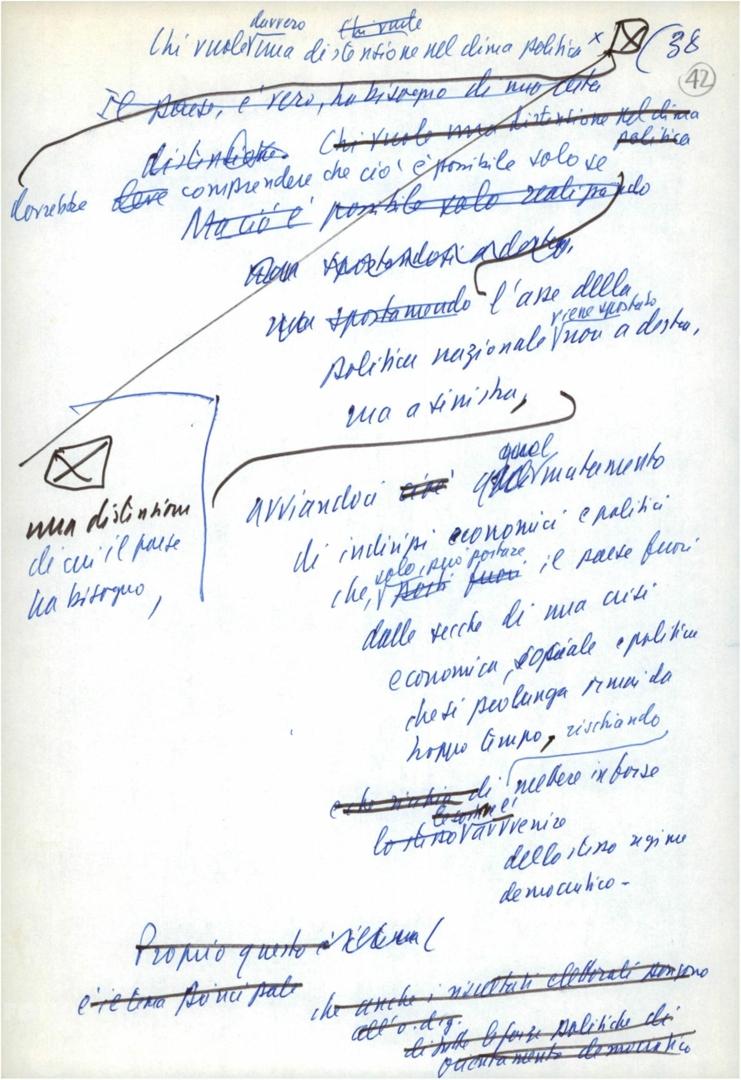 davvero Chi vuole
Chi vuole una distensione nel clima politico x (38
42
Il paese, è vero, ha bisogno di una certa
distensione. Chi vuole una distensione nel clima
politico
dovrebbe deve comprendere che ciò è possibile solo se
Ma ciò è possibile solo realizzando
non spostandosi a destra,
ma spostando l'asse della
viene spostato
politica nazionale non a destra,
ma a sinistra,
quel
avviandoci cioè mutamento
di indirizzi economici e politici
solo, può portare
che, porti fuori il paese fuori
dalle secche di una crisi
economica, sociale e politica
che si prolunga ormai da
troppo tempo, rischiando
e che rischia di mettere in forse
lo stesso avvenire
dello stesso regime
democratico -
una distensione
di cui il paese
ha bisogno,
Proprio questo è il tema (
è il tema principale
che anche i risultati elettorali pongono
all'o.d.g.
di tutte le forze politiche di
orientamento democratico